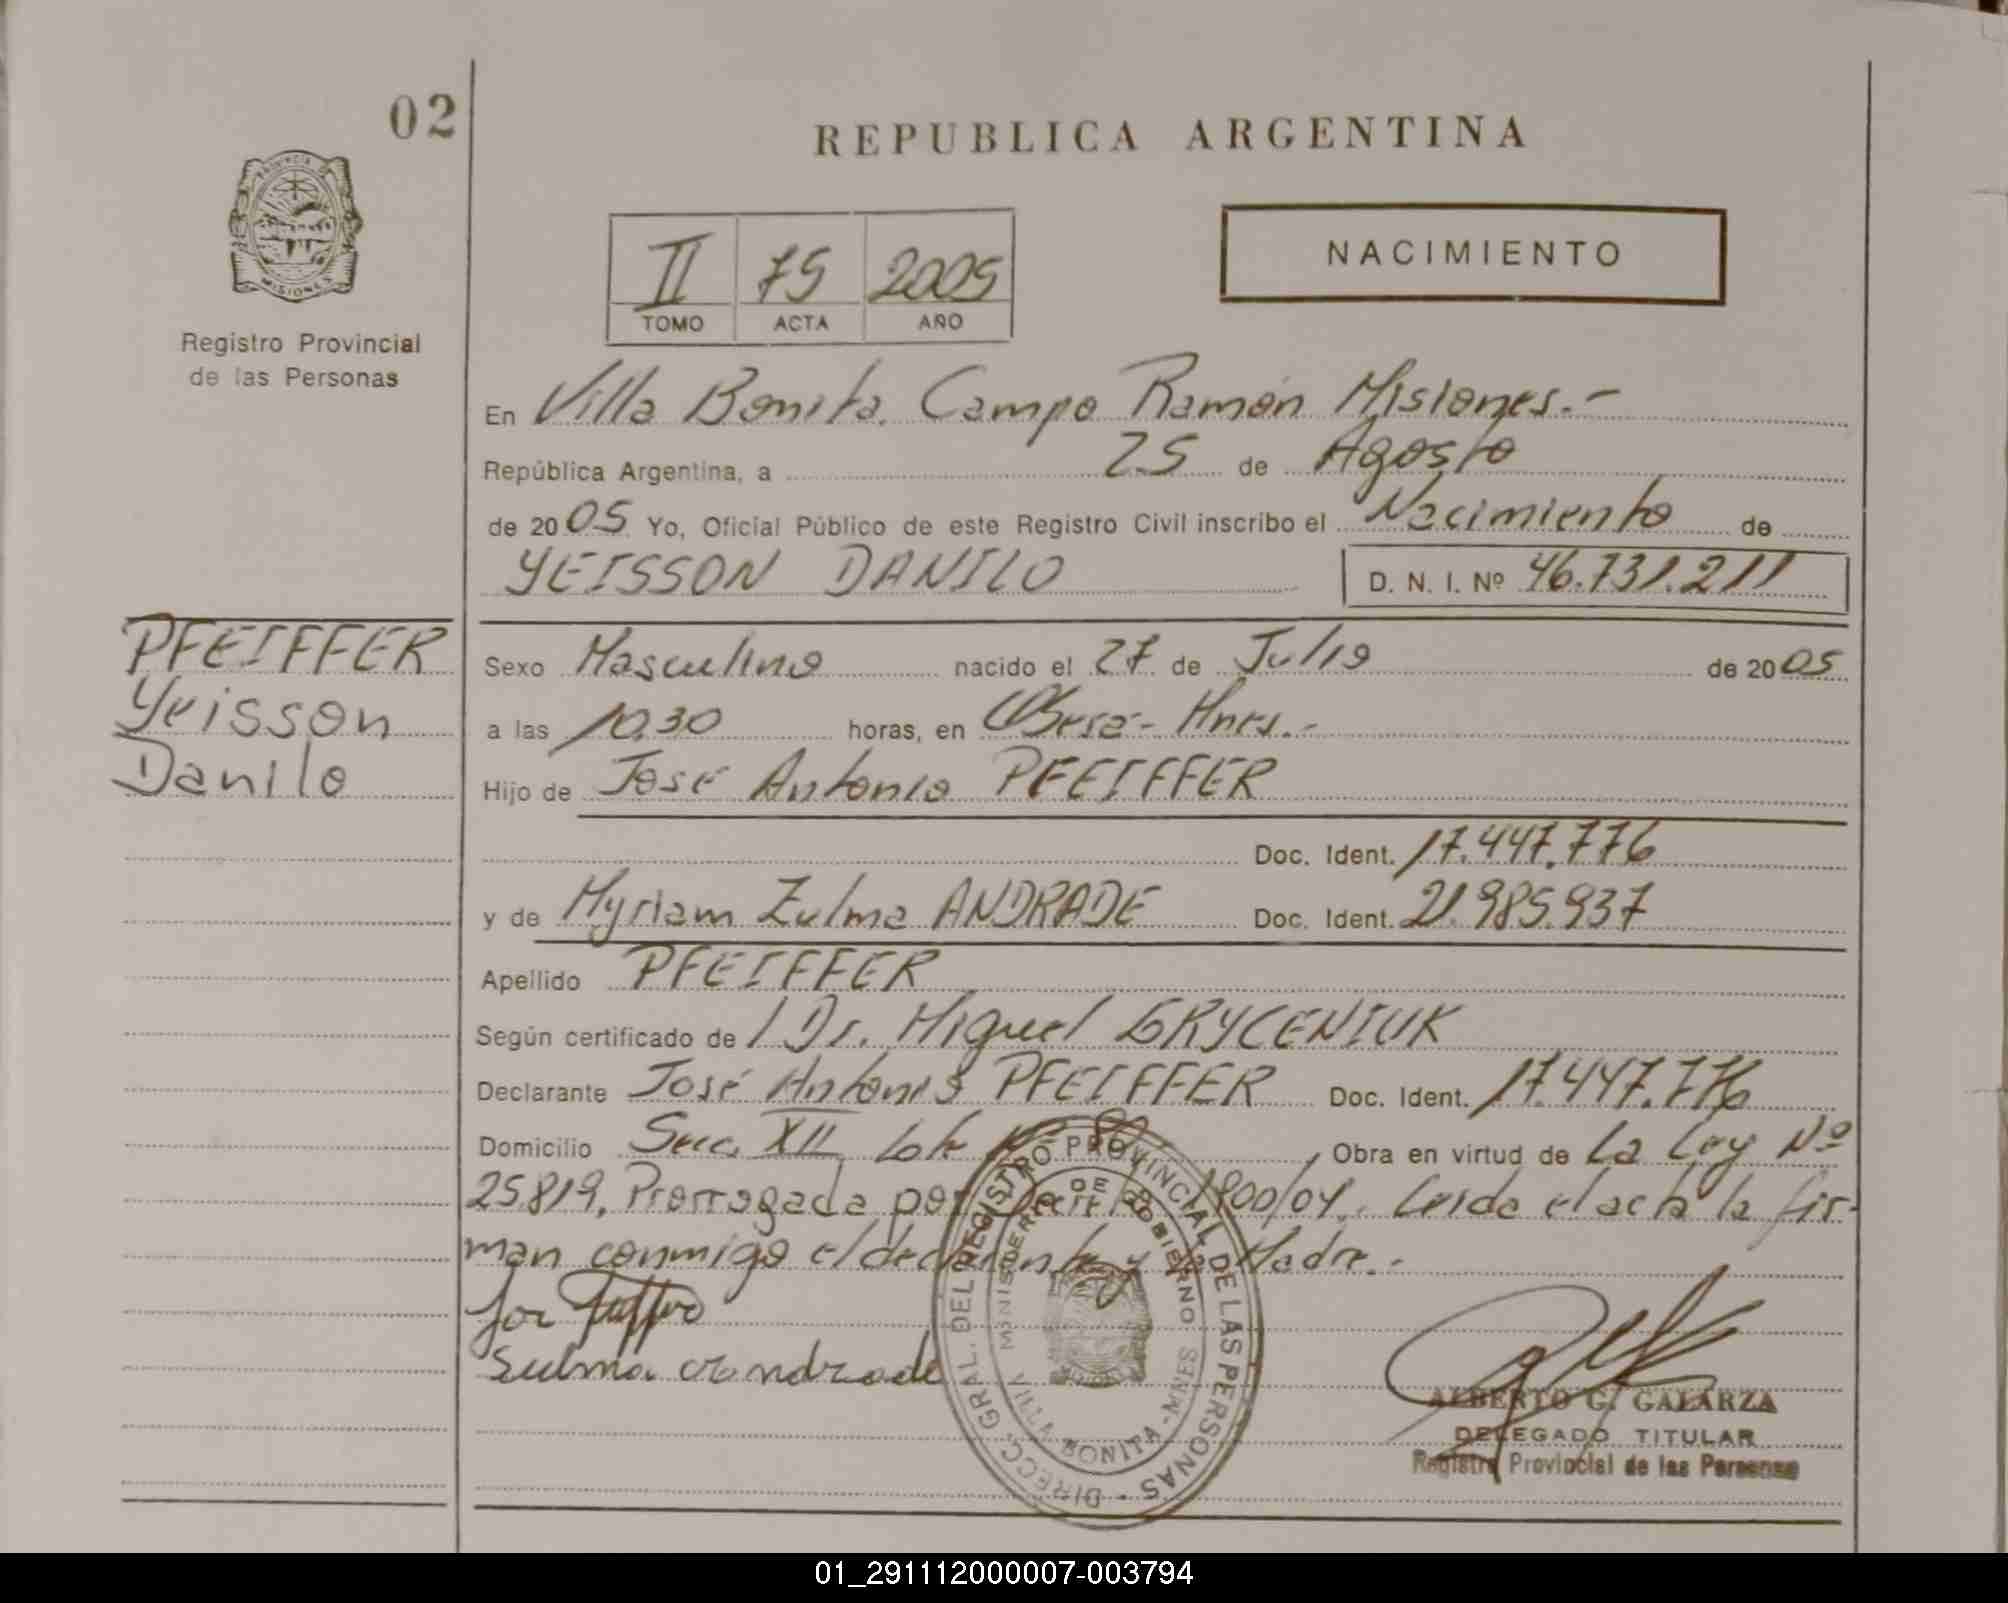 02
REPUBLICA ARGENTINA
PROVINCIA
MISIONES
Registro Provincial
de las Personas
II 75 2005
TOMO ACTA AÑO
NACIMIENTO
En Villa Bonita, Campo Ramón Misiones.-
República Argentina, a 25 de Agosto
de 2005 Yo, Oficial Público de este Registro Civil inscribo el Nacimiento de
YEISSON DANILO D. N. I. Nº 46.731.211
PFEIFFER
Yeisson
Danilo
Sexo Masculino nacido el 27 de Julio de 2005
a las 10,30 horas, en Oberá - Mnes.-
Hijo de José Antonio PFEIFFER
Doc. Ident. 17.447.776
y de Myriam Zulma ANDRADE Doc. Ident. 21.985.937
Apellido PFEIFFER
Según certificado de / Dr. Miguel GRYCENIUK
Declarante José Antonio PFEIFFER Doc. Ident. 17.447.776
Domicilio Secc. XII Lote Nº 80 Obra en virtud de La Ley Nº
25.819, Prorrogada por Decreto 1900/04. Leída el acta la fir-
man conmigo el declarante y la Madre.-
Sulma Andrade
DIRECC. GRAL. DEL REGISTRO PROVINCIAL DE LAS PERSONAS
MINISTERIO DE GOBIERNO
VILLA BONITA - MNES
ALBERTO G. GALARZA
DELEGADO TITULAR
Registro Provincial de las Personas
01_291112000007-003794